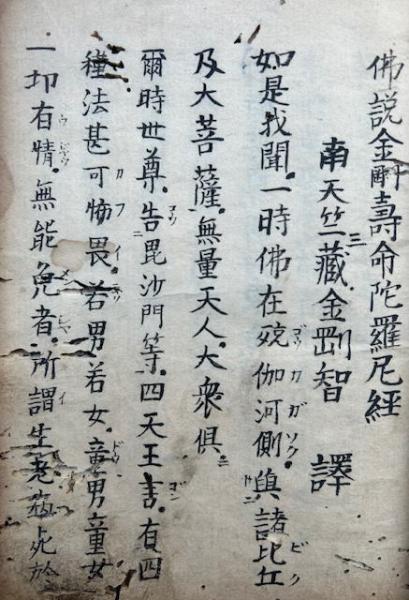 佛説金剛壽命陀羅尼經
南天竺三藏金剛智 譯
如是我聞。一時佛在殑伽河側。與諸比丘
及大菩薩。無量天人。大衆俱。
爾時世尊。告毘沙門等。四天王言。有四
種法甚可怖畏。若男若女。童男童女
一切有情。無能免者。所謂生老病死於